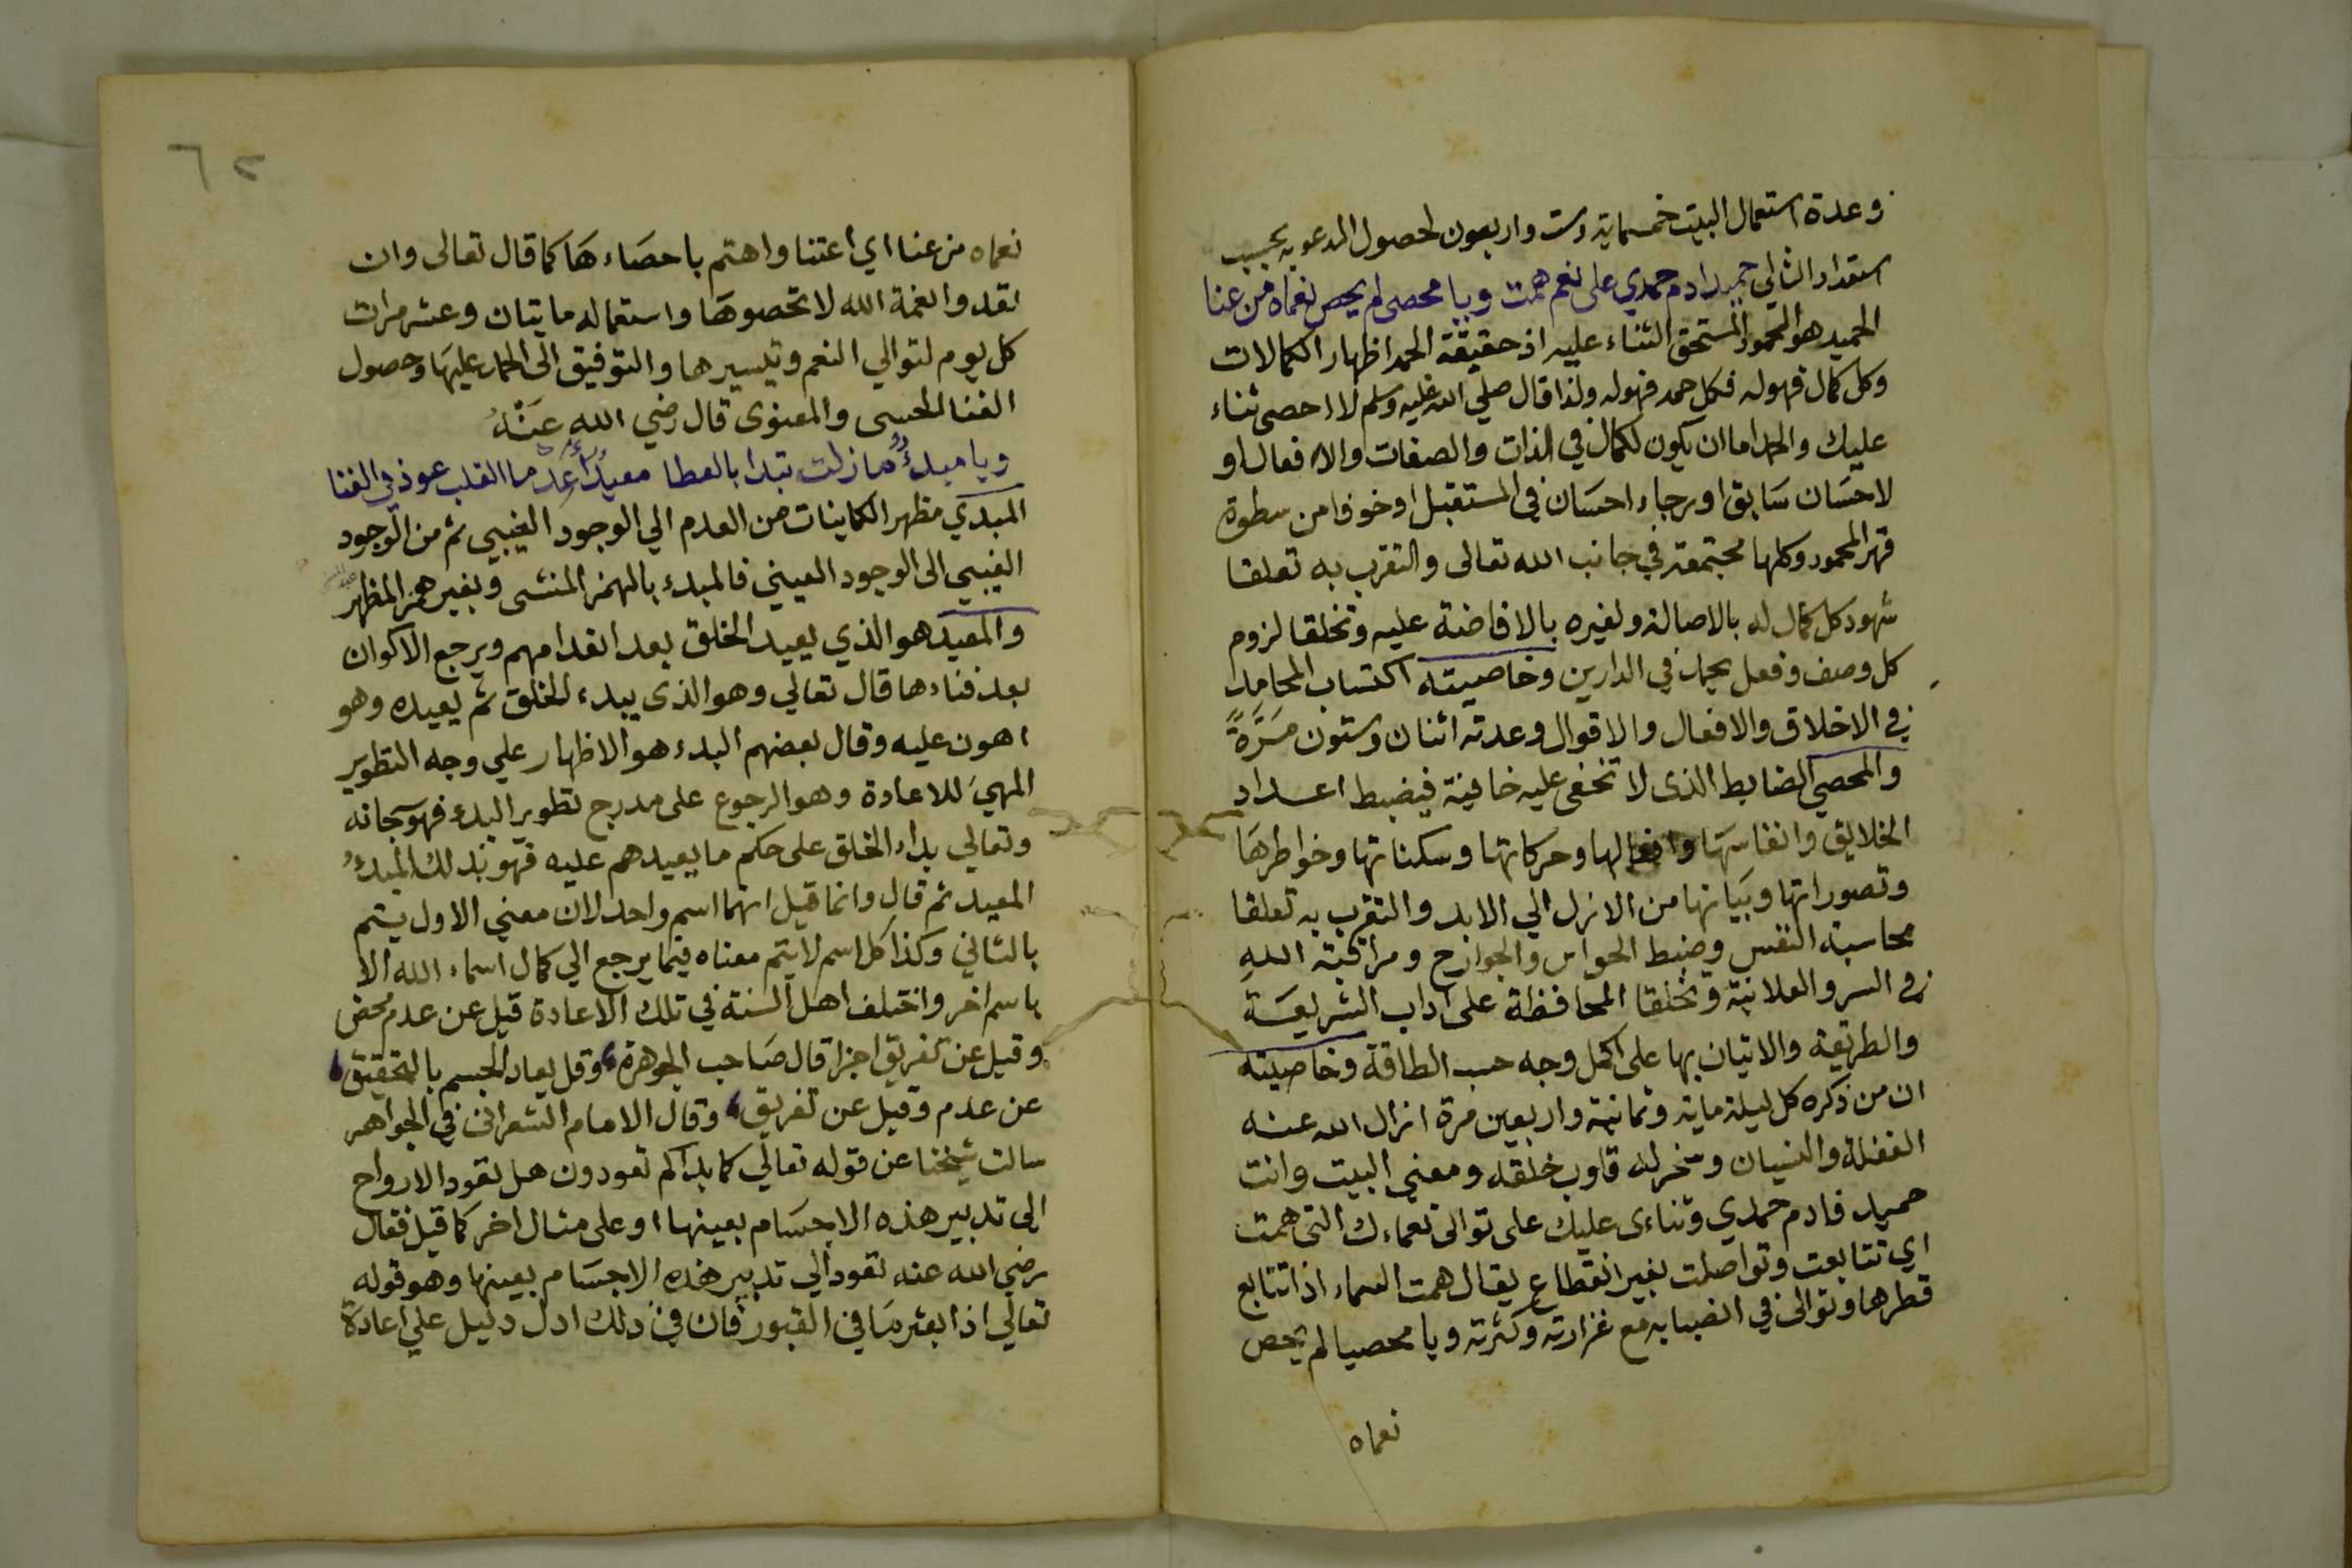 وعدة استعمال البيت خمسماية وست واربعون لحصول المدعو به بحسب
استعداد التالي حميد ادم حمدي على نعم همت ويا محصى لم يحص نعماه من عنا
الحميد هو المحمود المستحق الثناء عليه اذ حقيقة الحمد اظهار الكمالات
وكل كمال فهوله فكل حمد فهوله ولذا قال صلي الله عليه وسلم لا احصى ثناء
عليك والحمد اما ان يكون لكمال في الذات والصفات والافعال او
لاحسان سابق او رجاء احسان في المستقبل او خوفا من سطوة
قهر المحمود وكلها مجتمعة في جانب الله تعالى والتقرب به تعلقا
شهود كل كمال له بالاصالة ولغيره بالافاضة عليه وتخلقا لزوم
كل وصف وفعل يحمد في الدارين وخاصيته اكتساب المحامد
في الاخلاق والافعال والاقوال وعدته اثنان وستون مرة
والمحصي الضابط الذى لا تخفى عليه خافية فيضبط اعداد
الخلايق وانفاسها وافعالها وحركاتها وسكناتها وخواطرها
وتصوراتها وبياتها من الازل الي الابد والتقرب به تعلقا
محاسبة النفس وضبط الحواس والجوارح ومراقبة الله
في السر والعلانية وتخلقا المحافظة على اداب الشريعة
والطريقة والاتيان بها على اكمل وجه حسب الطاقة وخاصيته
ان من ذكره كل ليلة ماية وثمانية واربعين مرة ازال الله عنه
الغفلة والنسيان وسخر له قلوب خلقه ومعني البيت وانت
حميد فادم حمدي وثناءى عليك على توالى نعماءك التى همت
اي تتابعت وتواصلت بغير انقطاع يقال همت السماء اذا تتابع
قطرها وتوالى في انصبابه مع غزارته وكثرته ويا محصيا لم يحص
نعماه
٦٢
نعماه من عنا اي اعتنا واهتم باحصاءها كما قال تعالى وان
تعدوا نعمة الله لا تحصوها واستعماله مايتان وعشر مرات
كل يوم لتوالي النعم وتيسيرها والتوفيق الى الحمد عليها وحصول
الغنا الحسى والمعنوى قال رضي الله عنه
ويا مبدء ما زلت تبدا بالعطا معيد اعد ما القلب عوذ في الفنا
المبدي مظهر الكاينات من العدم الي الوجود الغيبي ثم من الوجود
الغيبي الى الوجود العيني فالمبدء بالهمز المنشى وبغير همز المظهر
والمعيد هو الذي يعيد الخلق بعد انعدامهم ويرجع الاكوان
بعد فناءها قال تعالي وهو الذى يبدء الخلق ثم يعيده وهو
اهون عليه وقال بعضهم البدء هو الاظهار علي وجه التطوير
المهئ للاعادة وهو الرجوع على مدرج تطوير البدء فهو سبحانه
وتعالي بداء الخلق على حكم ما يعيدهم عليه فهو بذلك المبدء
المعيد ثم قال وانما قيل انهما اسم واحد لان معني الاول يتم
بالثاني وكذا كل اسم لا يتم معناه فيما يرجع الي كمال اسماء الله الا
باسم اخر واختلف اهل السنة في تلك الاعادة قيل عن عدم محض
وقيل عن تفريق اجزا قال صاحب الجوهرة وقل يعاد الجسم بالتحقيق
عن عدم وقيل عن تفريق وقال الامام الشعرانى في الجواهر
سالت شيخنا عن قوله تعالي كما بداكم تعودون هل تعود الارواح
الى تدبير هذه الاجسام بعينها او على مثال اخر كما قيل فقال
رضي الله عنه تعود الي تدبير هذه الاجسام بعينها وهو قوله
تعالي اذا بعثر ما في القبور فان في ذلك ادل دليل علي اعادة